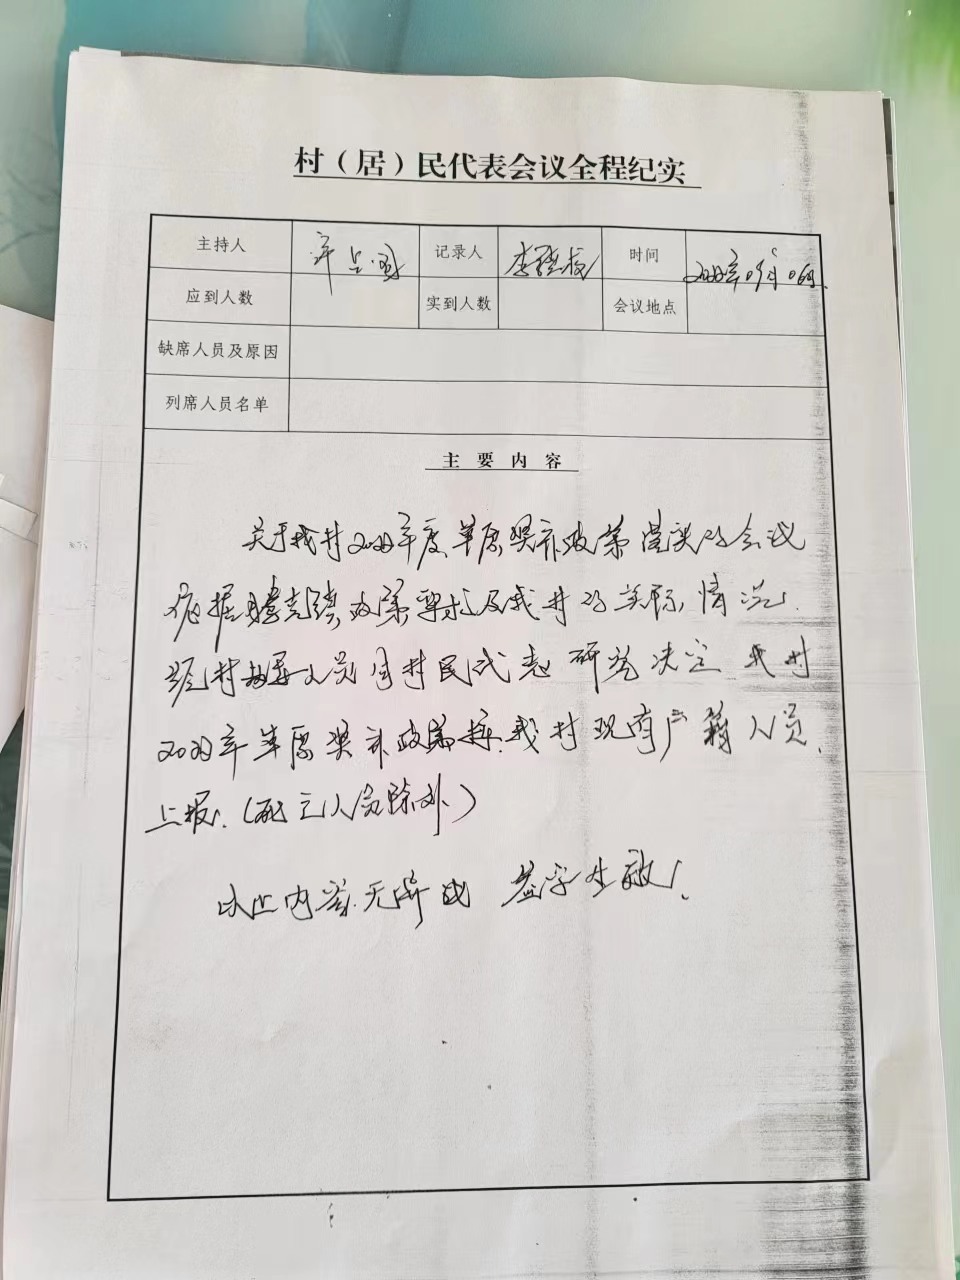 村（居）民代表会议全程纪实
主持人 记录人 李 时间
应到人数 实到人数 会议地点
缺席人员及原因
列席人员名单
主要内容
关于我村2022年度草原奖补政策落实的会议
依据 政策要求及我村的实际情况.
经村 人员 村民代表研究决定 我村
2022年草原奖补政策按.我村现有户籍人员.
上报.(死亡人员除外)
以上内容.无异议 签字生效！